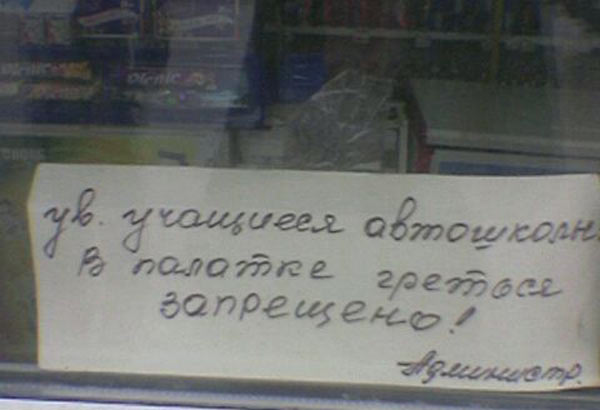 ув. учащиеся автошколы
В палатке греться
запрещено!
Администр.